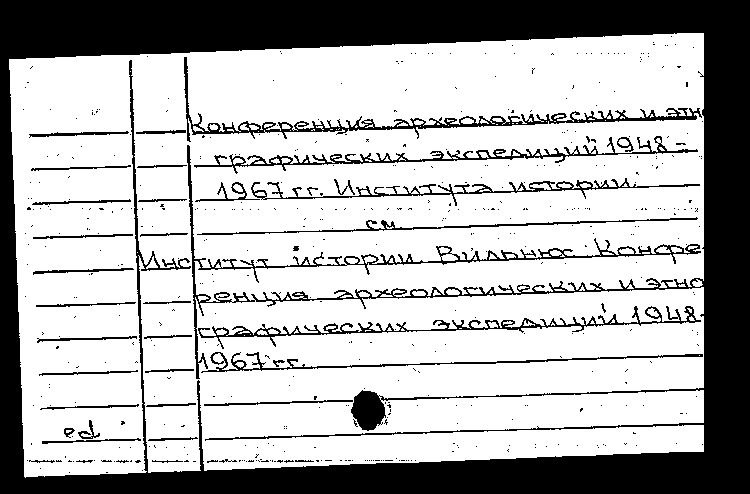 Конференция археологических и этно
графических экспедиций 1948 -
1967 гг. Института истории.
см
Институт истории. Вильнюс. Конфе-
ренция археологических и этно
графических экспедиций 1948-
1967 гг.
ed